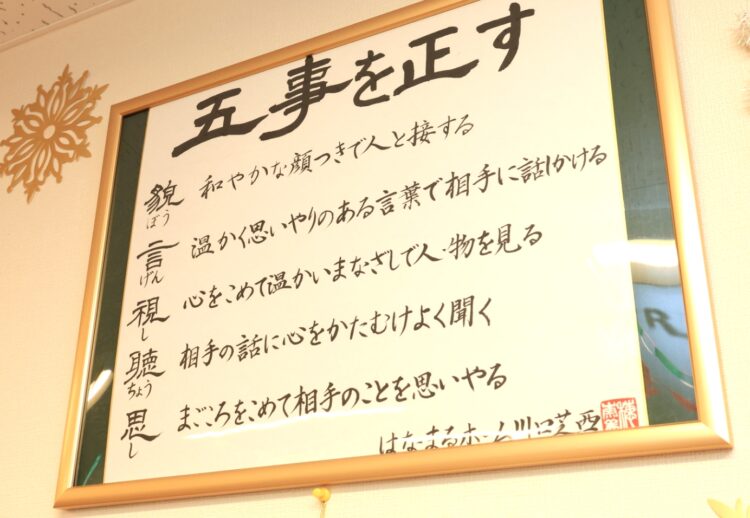 五事を正す
貌 ぼう 和やかな顔つきで人と接する
言 げん 温かく思いやりのある言葉で相手に話しかける
視 し 心をこめて温かいまなざしで人・物を見る
聴 ちょう 相手の話に心をかたむけよく聞く
思 し まごころをこめて相手のことを思いやる
はなまるホーム川口芝西